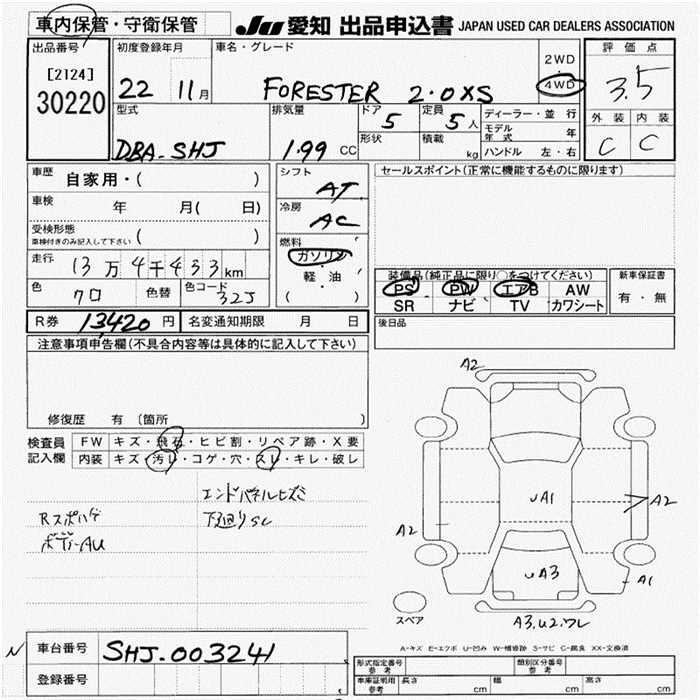 車内保管・守衛保管 JU 愛知 出品申込書 JAPAN USED CAR DEALERS ASSOCIATION
出品番号 初度登録年月 車名・グレード 2WD 評価点
[2124] 22 11月 FORESTER 2.0XS 4WD 3.5
30220
型式 排気量 ドア 定員 ディーラー・並行 外装 内装
5 5人 モデル年式 年
DBA-SHJ 1.99 CC 形状 積載 kg ハンドル 左・右 C C
車歴 自家用・( ) シフト AT セールスポイント(正常に機能するものに限ります)
車検 年 月( 日) 冷房 AC
受検形態
車検付きのみ記入して下さい ( ) 燃料
ガソリン
走行 13万4千433km 軽・油 装備品(純正品に限り○をつけてください) 新車保証書
色 クロ 色替 色コード 32J ( ) PS PW エアB AW 有・無
SR ナビ TV カワシート
R券 13,420円 名変通知期限 月 日 後日品
注意事項申告欄(不具合内容等は具体的に記入して下さい)
修復歴 有 (箇所 )
検査員 FW キズ・飛石・ヒビ割・リペア跡・X要
記入欄 内装 キズ・汚レ・コゲ・穴・スレ・キレ・破レ
エンドパネルヒズミ
Rスポハゲ 下廻りSC
ボデーAU
A2
UA1
A2
A2
UA3
A1
スペア
A3,U2,ワレ
N 車台番号 SHJ-003241
登録番号
A-キズ E-エクボ U-凹み W-補修跡 S-サビ C-腐食 XX-交換済
形式指定番号 参考 類別区分番号 参考
車庫証明用 参考 長さ cm 幅 cm 高さ cm